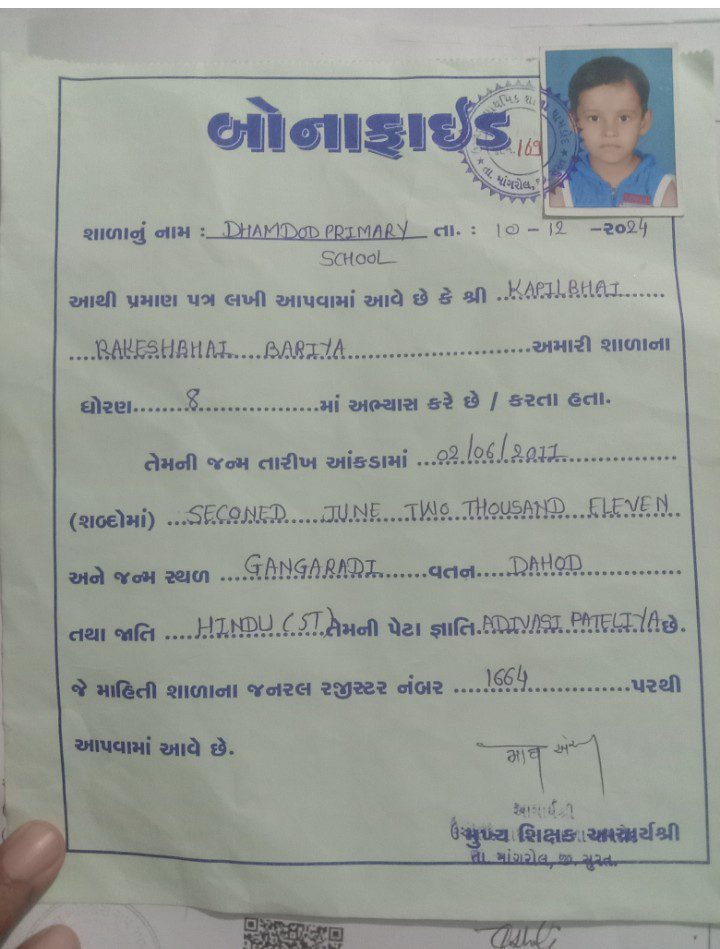 બોનાફાઈડ
169
તા. માંગરોલ,
શાળાનું નામ : DHAMDOD PRIMARY તા. : 10 - 12 - 2024
SCHOOL
આથી પ્રમાણ પત્ર લખી આપવામાં આવે છે કે શ્રી KAPILBHAI
RAKESHBHAI BARIYA અમારી શાળાના
ધોરણ 8 માં અભ્યાસ કરે છે / કરતા હતા.
તેમની જન્મ તારીખ આંકડામાં 02/06/2011
(શબ્દોમાં) SECONED JUNE TWO THOUSAND ELEVEN
અને જન્મ સ્થળ GANGARADI વતન DAHOD
તથા જાતિ HINDU (ST) તેમની પેટા જ્ઞાતિ ADIVASI PATELIYA છે.
જે માહિતી શાળાના જનરલ રજીસ્ટર નંબર 1664 પરથી
આપવામાં આવે છે.
આચાર્યશ્રી
મુખ્ય શિક્ષક આચાર્યશ્રી
તા. માંગરોલ, જી. સુરત.